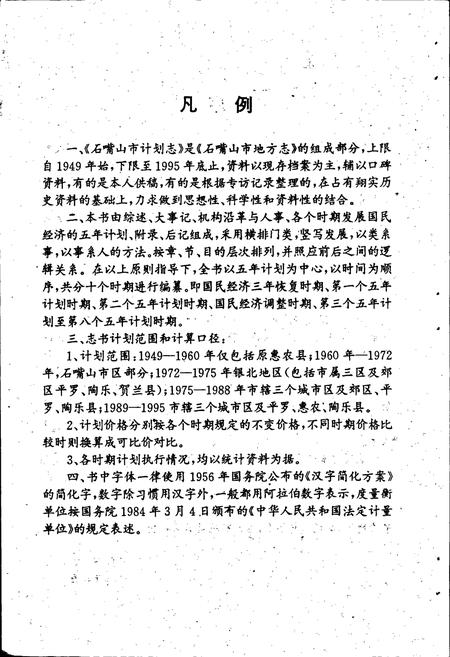 凡 例
一、《石嘴山市计划志》是《石嘴山市地方志》的组成部分,上限
自1949年始,下限至1995年底止,资料以现存档案为主,辅以口碑
资料,有的是本人供稿,有的是根据专访记录整理的,在占有翔实历
史资料的基础上,力求做到思想性、科学性和资料性的结合。
二、本书由综述、大事记、机构沿革与人事、各个时期发展国民
经济的五年计划、附录、后记组成,采用横排门类,竖写发展,以类系
事,以事系人的方法。按章、节、目的层次排列,并照应前后之间的逻
辑关系。在以上原则指导下,全书以五年计划为中心,以时间为顺
序,共分十个时期进行编纂。即国民经济三年恢复时期、第一个五年
计划时期、第二个五年计划时期、国民经济调整时期、第三个五年计
划至第八个五年计划时期。
三、志书计划范围和计算口径:
1、计划范围:1949—1960年仅包括原惠农县;1960年—1972
年,石嘴山市区部分;1972—1975年银北地区(包括市属三区及郊
区平罗、陶乐、贺兰县);1975—1988年市辖三个城市区及郊区、平
罗、陶乐县;1989—1995市辖三个城市区及平罗、惠农、陶乐县。
2、计划价格分别按各个时期规定的不变价格,不同时期价格比
较时则换算成可比价对比。
3、各时期计划执行情况,均以统计资料为据。
四、书中字体一律使用1956年国务院公布的《汉字简化方案》
的简化字,数字除习惯用汉字外,一般都用阿拉伯数字表示,度量衡
单位按国务院1984年3月4日颁布的《中华人民共和国法定计量
单位》的规定表述。